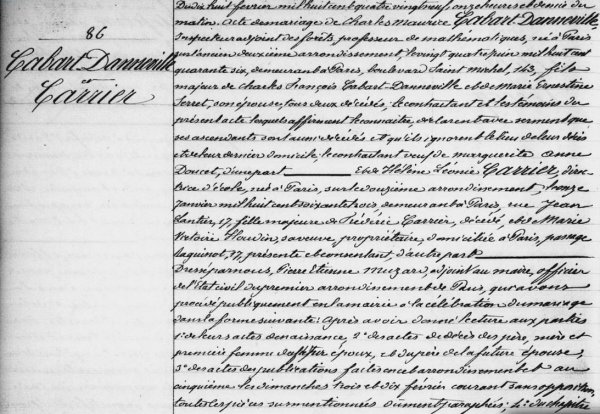 86
Cabart-Danneville
et
Carrier
Du dix huit février mil huit cent quatre vingt neuf, onze heures et demie du
matin. Acte de mariage de Charles Maurice Cabart-Danneville
Inspecteur adjoint des forêts, professeur de mathématiques, né à Paris
sur l'ancien deuxième arrondissement, le vingt quatre juin mil huit cent
quarante six, demeurant à Paris, boulevard Saint Michel, 143, fils
majeur de Charles François Cabart-Danneville et de Marie Ernestine
Seret, son épouse, tous deux décédés, le contractant et les témoins du
présent acte lesquels affirment le connaître, déclarent avec serment que
ses ascendants sont aussi décédés et qu'ils ignorent le lieu de leur décès
et de leur dernier domicile, le contractant veuf de Marguerite Anne
Doucet, d'une part ——— Et de Hélène Léonie Carrier, direc-
trice d'école, née à Paris, sur le douzième arrondissement, le onze
janvier mil huit cent soixante trois, demeurant à Paris, rue Jean
Lantier, 17, fille majeure de Frédéric Carrier, décédé, et de Marie
Victoire Houdin, sa veuve, propriétaire, domiciliée à Paris, passage
Raguinot, 17, présente et consentant, d'autre part ———
Dressé par nous, Pierre Etienne Muzard, adjoint au maire, officier
de l'Etat civil du premier arrondissement de Paris, qui avons
procédé publiquement en la mairie à la célébration du mariage
dans la forme suivante: Après avoir donné lecture aux parties
1° de leurs actes de naissance, 2° des actes de décès des père, mère et
première femme du futur époux, et du père de la future épouse,
3° des actes des publications faites en cet arrondissement et au
cinquième les dimanches trois et dix février courant sans opposition,
toutes les pièces sus mentionnées dûment paraphées; 4° du chapitre